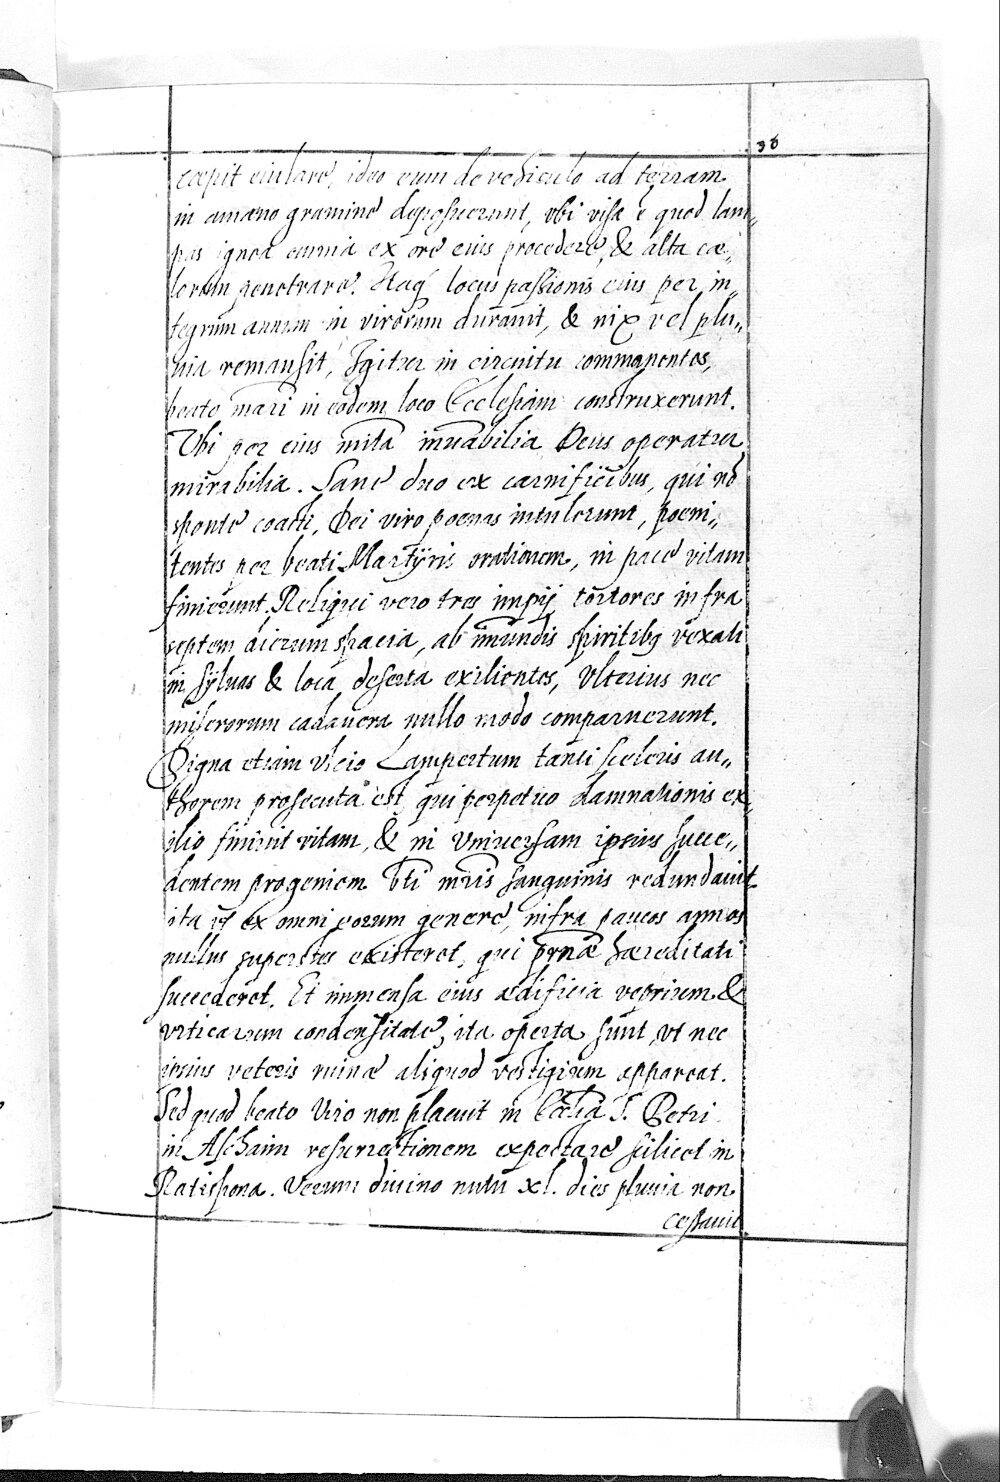 36
cœpit eiulare, ideo eum de vehiculo ad terram
in amæno gramine deposuerunt, vbi visa ē quod lam„
pas ignea eximia ex ore eius procedere, & alta cæ„
lorum penetrare. Itaq́ locus passionis eius per in„
tegrum annum in virorum durauit, & nix vel plu„
uia remansit, Igitur in circuitu commanentes,
beato mari in eodem loco Ecclesiam construxerunt.
Vbi per eius mīta inuabilia Deus operatur
mirabilia. Sane duo ex carnificibus, qui nō
sponte coacti, Dei viro poenas intulerunt, poeni„
tentes per beati Martÿris orationem, in pace vitam
finierunt. Reliqui vero tres impij tortores infra
septem dierum spacia, ab imundis spiritibꝫ vexati
in sÿluas & loca deserta exilientes, Vlterius nec
miserorum cadauera nullo modo comparuerunt.
Digna etiam vltio Lampertum tanti sceleris au„
thorem prosecuta est, qui perpetuo damnationis ex„
ilio finiuit vitam, & in Vniuersam ipsius succe„
dentem progeniem bti mris sanguinis redundauit
ita qd ex omni eorum genere, infra paucos annos
nullus superstes existeret, qui prnæ hæreditati
succederet. Et immensa eius ædificia veprium &
vrticarum condensitate, ita operta sunt, vt nec
ipsius veteris ruinæ aliquod vestigium appareat.
Sed quod beato Viro non placuit in Ecclia S. Petri
in Aschaim resurrectionem expectare scilicet in
Ratispona. Verum diuino nutu xl. dies pluuia non
cessauit